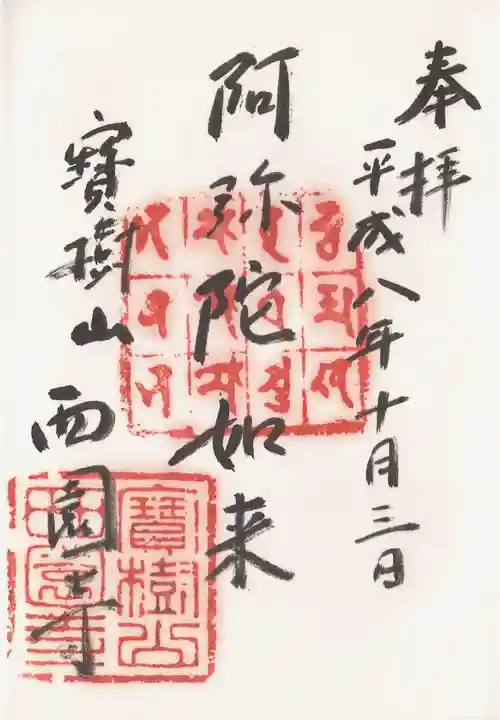 奉拝
平成八年十月三日
阿弥陀如来
寶樹山 西園寺
寶樹山
西園寺